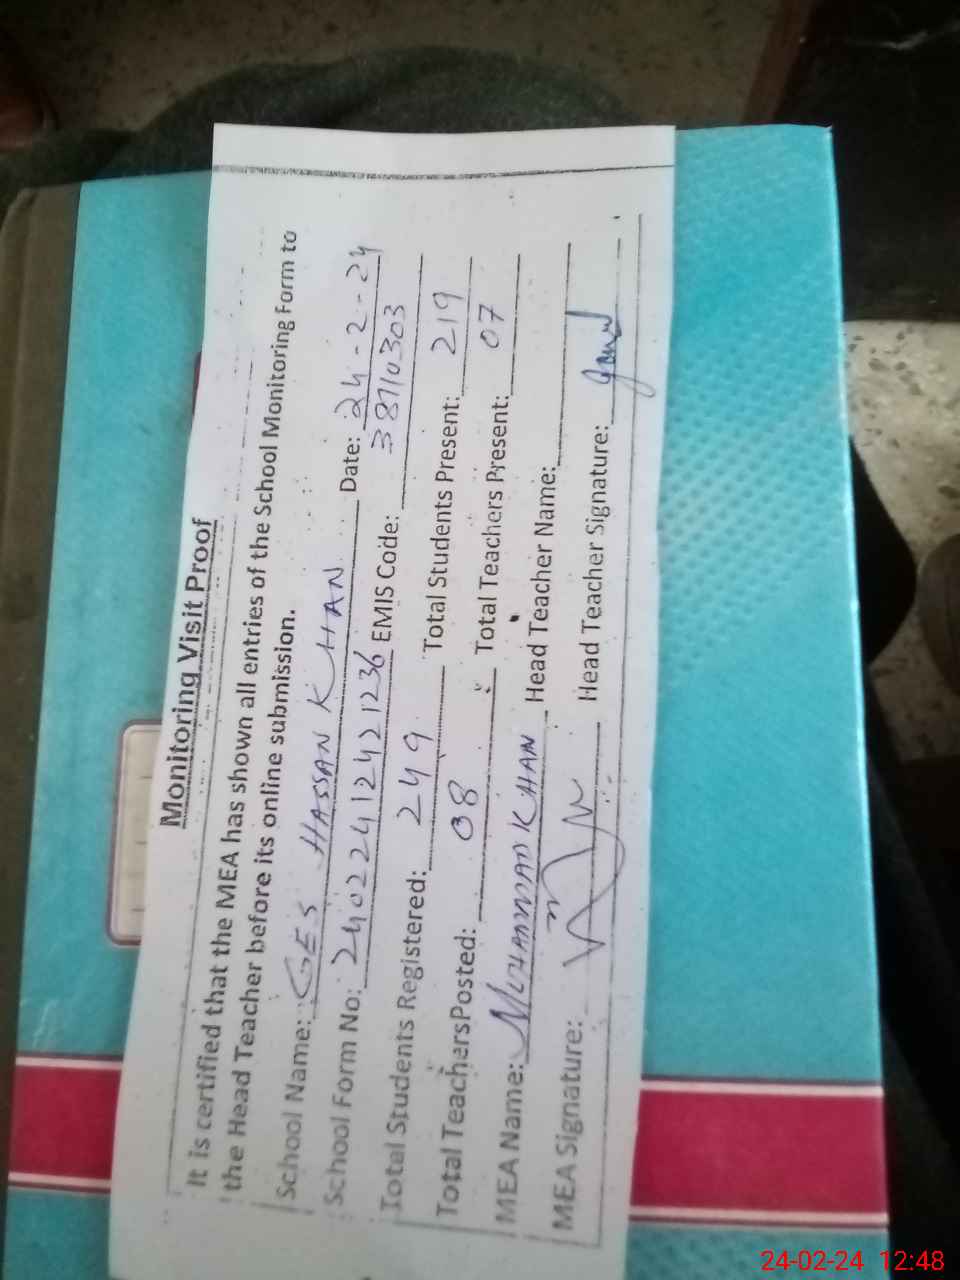 Monitoring Visit Proof
It is certified that the MEA has shown all entries of the School Monitoring Form to
the Head Teacher before its online submission.
School Name: GES HASSAN KHAN Date: 24-2-24
School Form No: 24022412421236 EMIS Code: 38710303
Total Students Registered: 249 Total Students Present: 219
Total TeachersPosted: 08 Total Teachers Present: 07
MEA Name: MUHAMMAD KHAN Head Teacher Name:
MEA Signature: Head Teacher Signature:
24-02-24 12:48